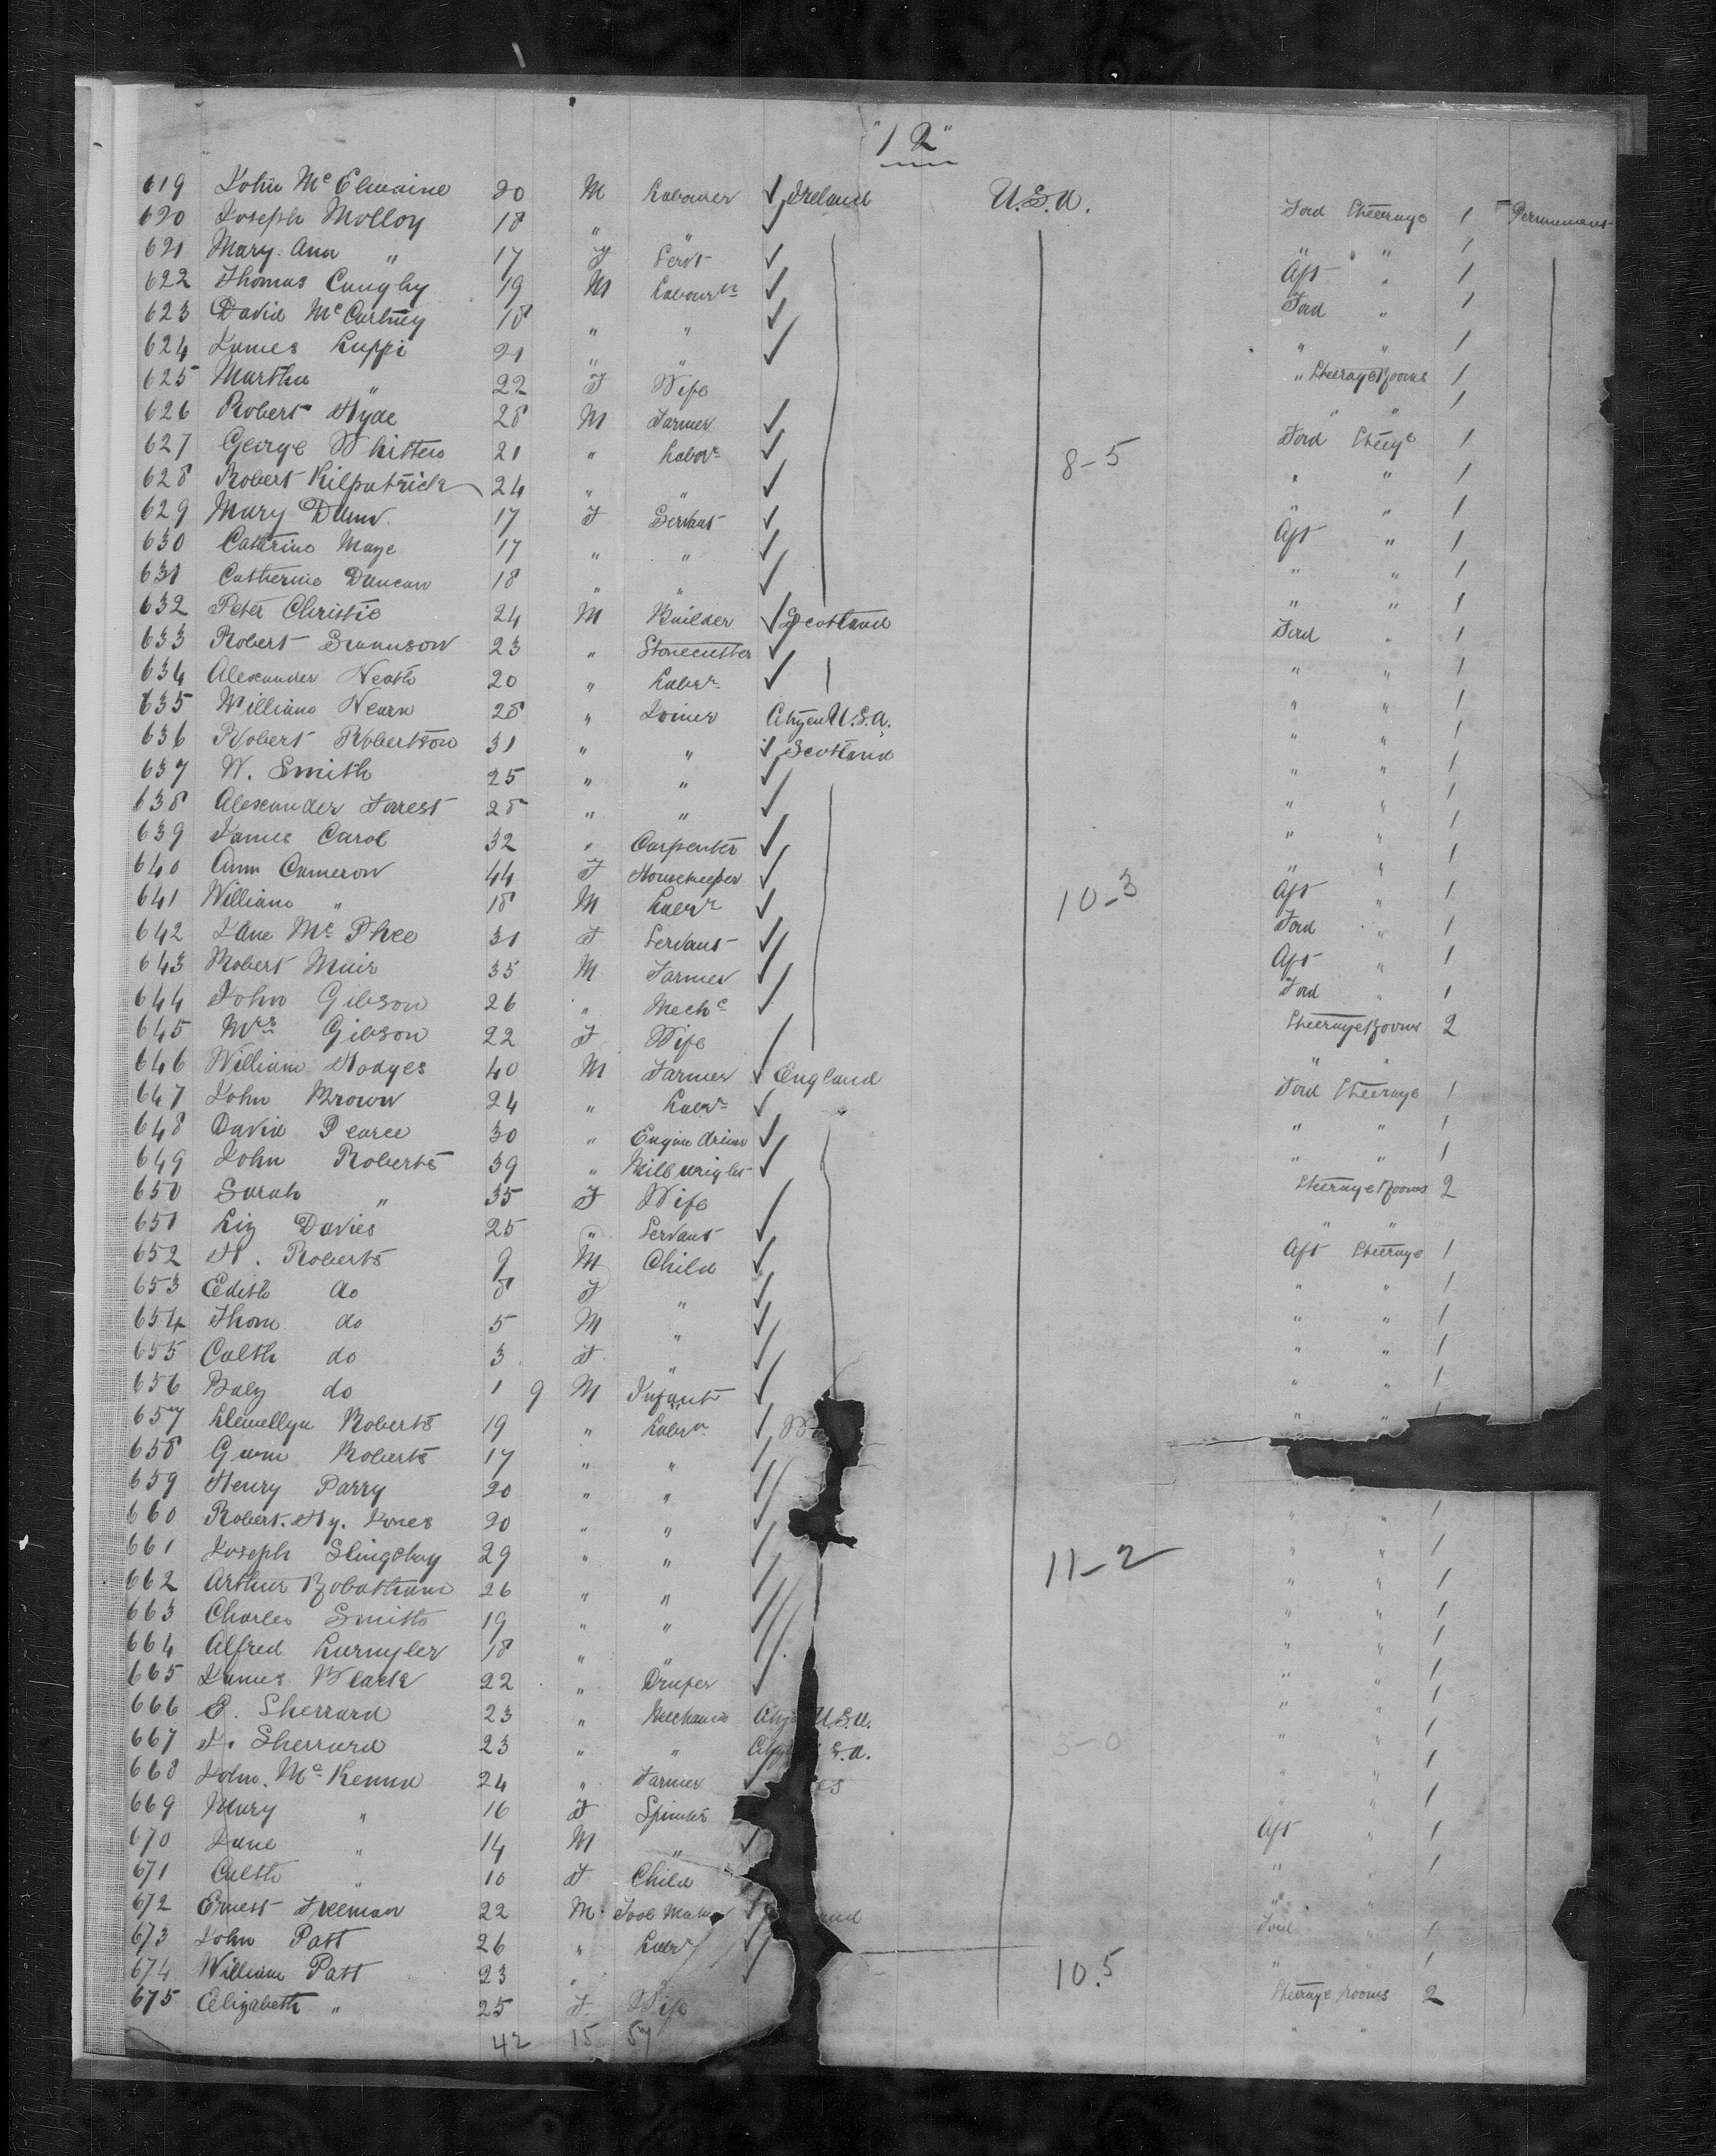 "12"
619 John McElwaine 20 M Labourer ✓ Ireland U.S.A. Ford Steerage 1 Permanent
620 Joseph Molloy 18 " " ✓ " " 1
621 Mary Ann " 17 F Servt ✓ Aft " 1
622 Thomas 19 M Labourer ✓ Ford " 1
623 David McCartney 18 " " ✓ " " 1
624 James 21 " " ✓ " Steerage Rooms 1
625 Martha " 22 F Wife " " 1
626 Robert Hyde 28 M Farmer ✓ Ford Steerge 1
627 George Whitten 21 " Labor ✓ 8-5 " " 1
628 Robert Kilpatrick 24 " " ✓ " " 1
629 Mary Dunn 17 F Servant ✓ Aft " 1
630 Catherine Maye 17 " " ✓ " " 1
631 Catherine Duncan 18 " " ✓ " " 1
632 Peter Christie 24 M Builder ✓ Scotland Ford " 1
633 Robert 23 " Stonecutter ✓ " " 1
634 Alexander 20 " Labr ✓ " " 1
635 William Nearn 28 " Joiner Citizen U.S.A. " " 1
636 Robert Robertson 31 " " ✓ Scotland " " 1
637 W. Smith 25 " " ✓ " " 1
638 Alexander Forrest 28 " " ✓ " " 1
639 James Carol 32 " Carpenter ✓ " " 1
640 Ann Cameron 44 F Housekeeper ✓ Aft " 1
641 William " 18 M Labr ✓ 10-3 Ford " 1
642 Jane McPhee 31 F Servant ✓ Aft " 1
643 Robert Muir 35 M Farmer ✓ Ford " 1
644 John Gibson 26 " Mechc ✓ Steerage Rooms 2
645 Mrs Gibson 22 F Wife " "
646 William Hodges 40 M Farmer ✓ England Ford Steerage 1
647 John Brown 24 " Labr ✓ " " 1
648 David Pearce 30 " Engine driver ✓ " " 1
649 John Roberts 39 " Millwright ✓ Steerage Rooms 2
650 Sarah " 35 F Wife " "
651 Liz Davies 25 " Servant ✓ Aft Steerage 1
652 H. Roberts 9 M Child ✓ " " 1
653 Edith do 8 F " ✓ " " 1
654 Thom do 5 M " ✓ " " 1
655 Cath do 3 F " ✓ " " 1
656 Baby do 1 9 M Infant ✓ " "
657 Llewellyn Roberts 19 " Labr
658 Roberts 17 " "
659 Henry Parry 20 " "
660 Robert. Hy. Jones 20 " " " " 1
661 Joseph 29 " " 11-2 " " 1
662 Arthur 26 " " " " 1
663 Charles Smith 19 " " " " 1
664 Alfred 18 " " " " 1
665 James Black 22 " Draper ✓ " " 1
666 E. Sherrard 23 " Mechanic U.S.A. " " 1
667 J. Sherrard 23 " " S.A. 3-0 " " 1
668 John. McKenna 24 " Farmer ✓ " " 1
669 Mary " 16 F Spinster Aft " 1
670 Jane " 14 M " ✓ " " 1
671 Cath " 10 F Child " "
672 Ernest Freeman 22 M Tool Maker ✓ Ford " 1
673 John Patt 26 " Labr ✓ " " 1
674 William Patt 23 " ✓ 10.5 Steerage rooms 2
675 Elizabeth " 25 F Wife " "
42 15 57